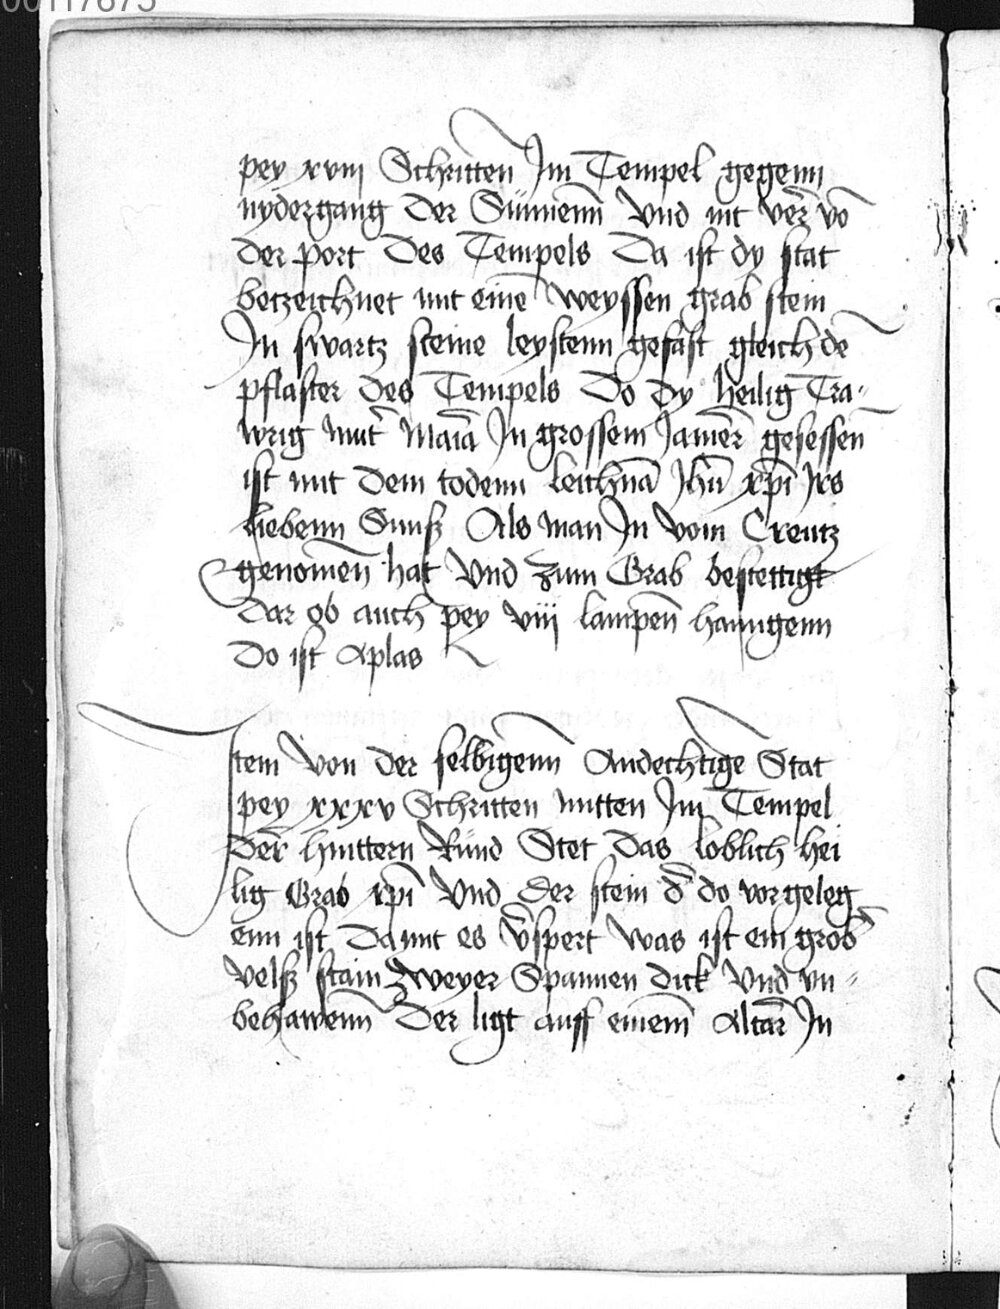 00117675
pey xviij Schritten Im Tempel gegenn
nydergang der Sunnenn Vnd nit verr vō
der port des Tempels Da ist dy stat
betzeichnet mit einē weyssen grab stein
In swartz steine leystenn gefast gleich dē
pflaster des Tempels Do dy heilig Tra-
wrig mutr̄ Maīa In grossem Jamer gesessen
ist mit dem todenn leichnā Jhū xp̄i Irs
liebenn Sunß Als man In vom Creutz
genomen hat Vnd zum Grab bestettigt
Dar ob auch pey viij lampen hanngenn
Do ist Aplas
Item von der selbigenn Andechtigē Stat
pey xxxv Schritten mitten Im Tempel
Der hintternn Rund Stet das loblich hei
lig Grab xp̄i Vnd der stein d̄ do vor geleg
enn ist Damit es v̄spert was ist ein grob
velß stain zweyer Spannen dick Vnd vn-
behawenn Der ligt auff einem Altar In